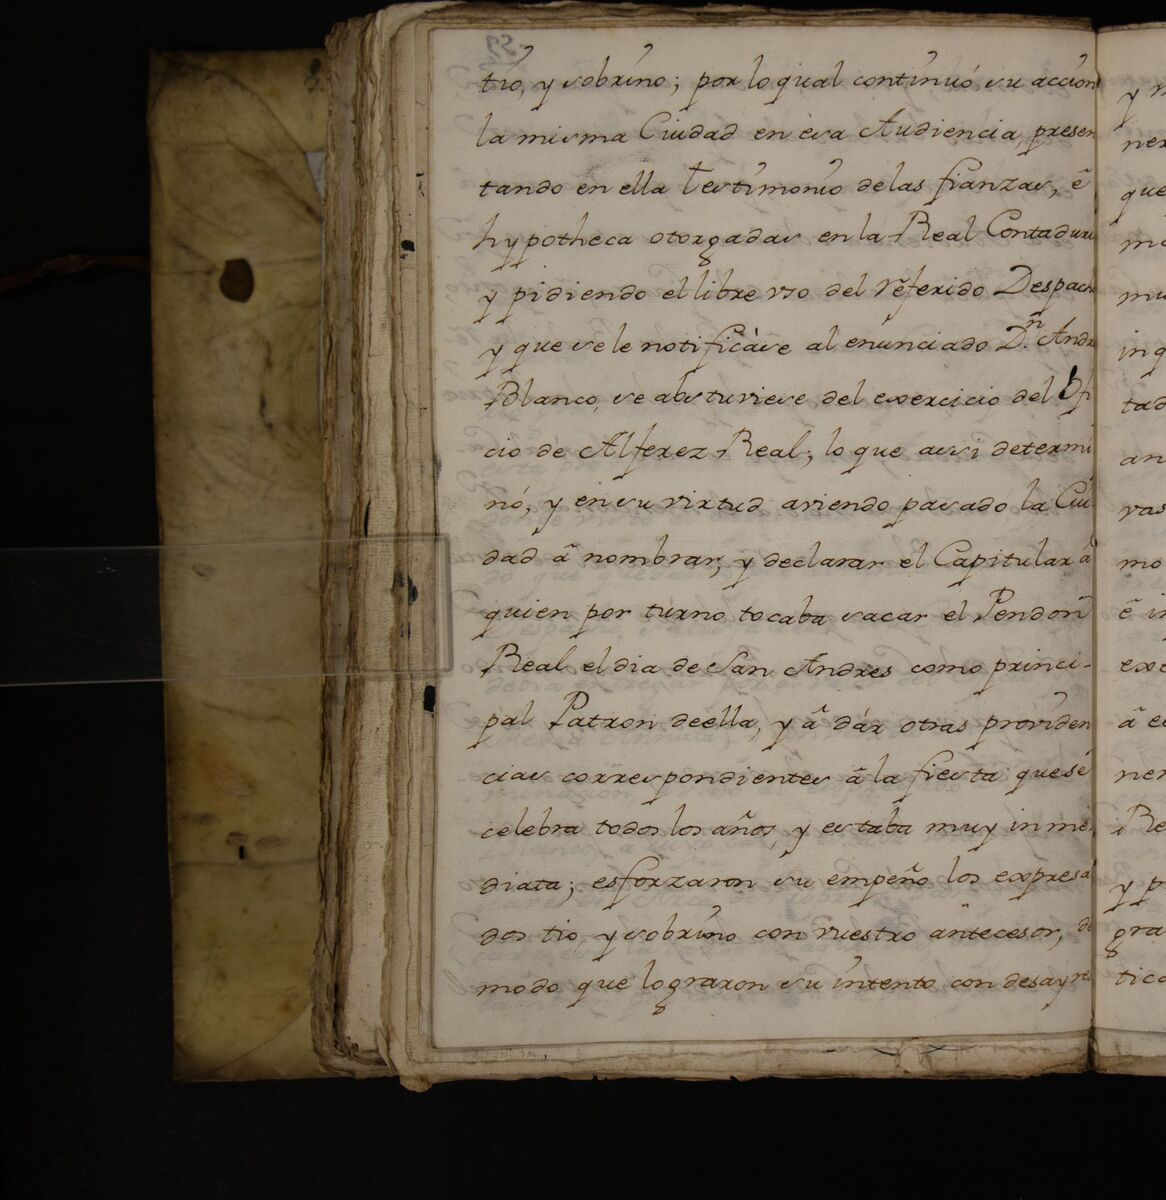 tio, y sobrino; por lo qual continuó su accion
la misma Ciudad en èsa Audiencia, presen
tando en ella testimonio de las fianzas, ê
hypotheca otorgadas en la Real Contaduri
y pidiendo el libre uso del referido Despacho
y que se le notificàse al enunciado Dn. Andr
Blanco, se abstuviese del exercicio del Ofi
cio de Alferez Real; lo que assi determi
nó, y en su virtud aviendo pasado la Ciu
dad â nombrar, y declarar el Capitular â
quien por turno tocaba sacar el Pendon
Real el dia de San Andres como princi-
pal Patron de ella, y â dár otras providen
cias correspondientes â la fiesta que sé
celebra todos los años, y estaba muy inme
diata; esforzaron su empeño los expresa
dos tio, y sobrino con vuestro antecesor, de
modo que lograron su intento con desayre